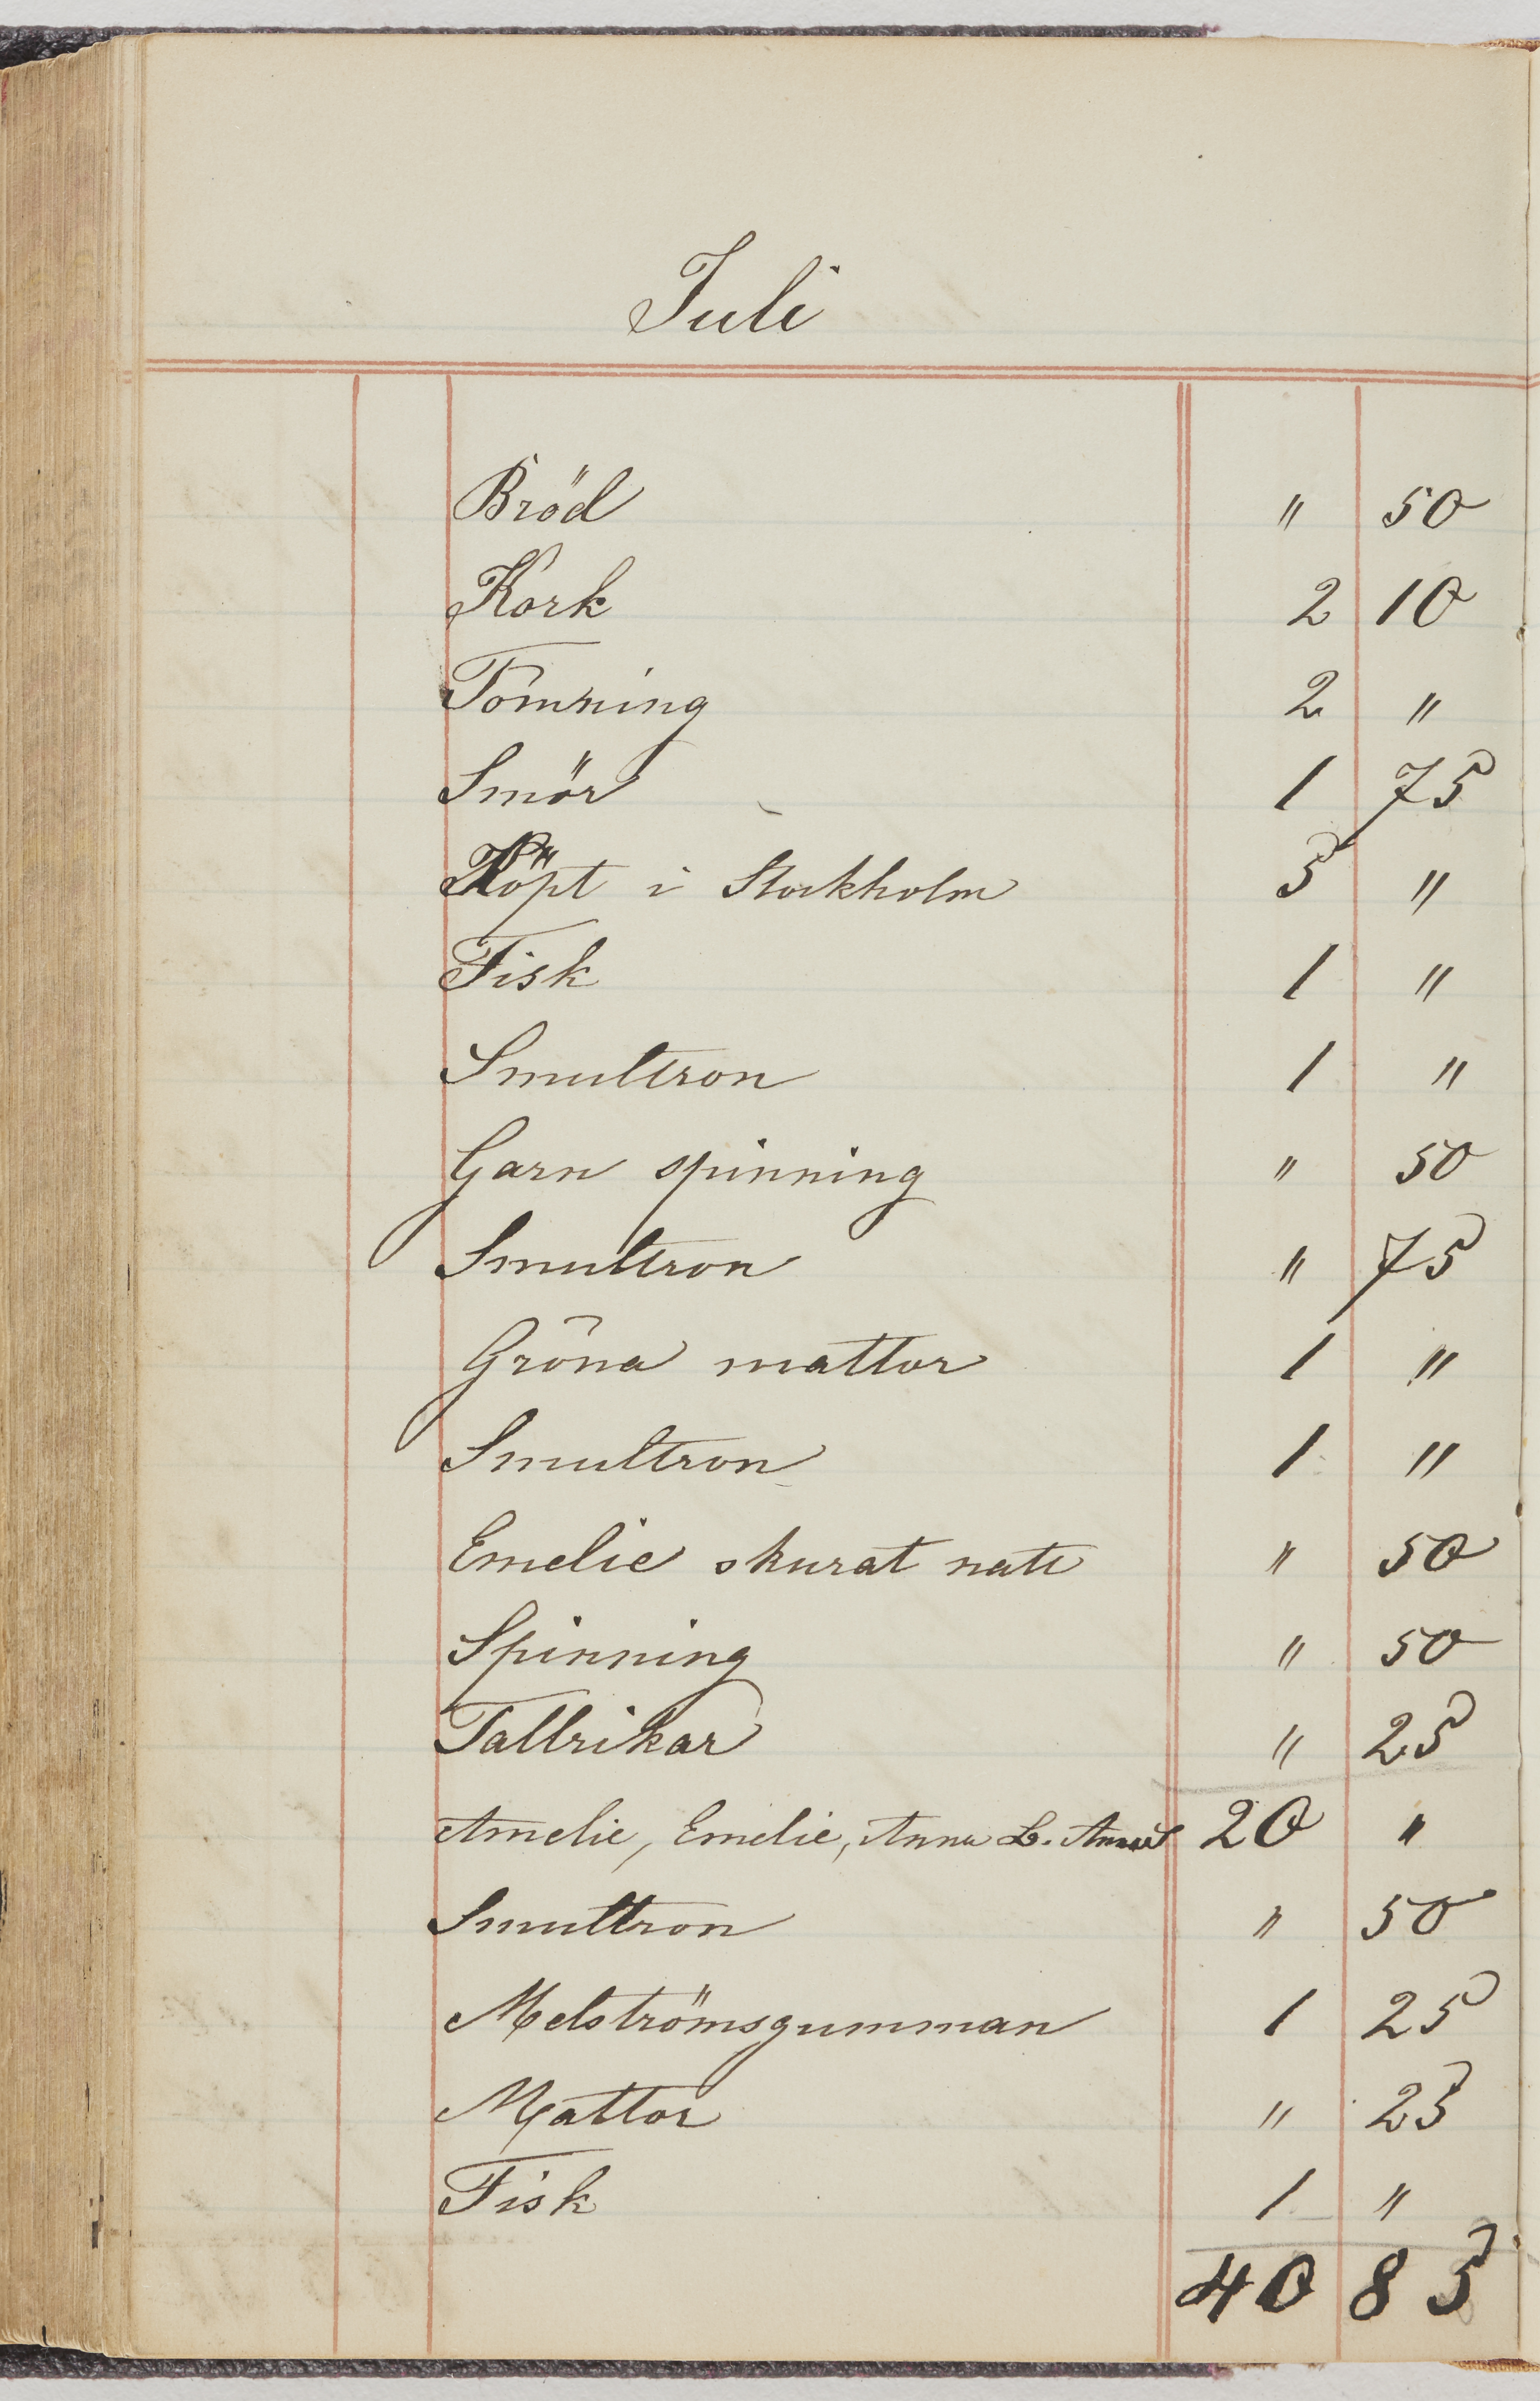 Juli
Bröd " 50
Kork 2 10
Tömning 2 "
Smör 1 75
Köpt i Stockholm 5 "
Fisk 1 "
Smultron 1 "
Garn spinning " 50
Smultron " 75
Gröna mattor 1 "
Smultron 1 "
Emelie skurat " 50
Spinning " 50
Tallrikar " 25
Amelie, Emelie, Anna L. 20 "
Smultron " 50
Melströmsgumman 1 25
Mattor " 25
Fisk 1 "
40 85